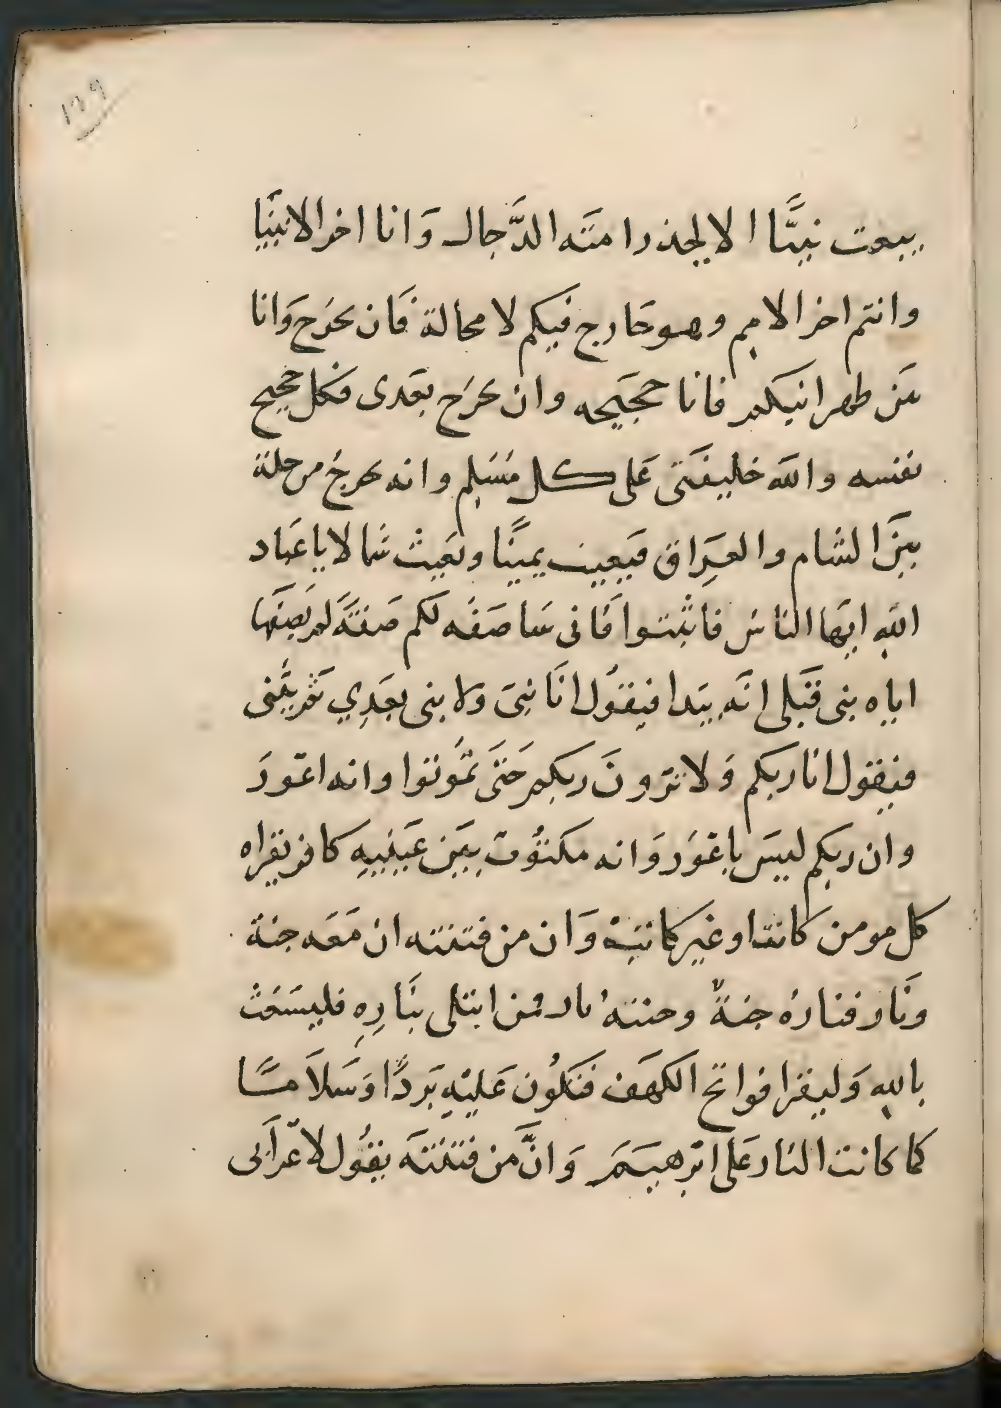 ١٣٩
يبعث نبيًّا الا ليحذر امته الدَّجال وَانا اخر الانبيَّا
وانتم اخر الامم وهو خارج فيكم لا محالة فَان يخرَج وَانا
بين ظهرانيكم فانا حجيجه وان يخرَج بعدى فكل حجيج
نفسه والله خليفتى عَلى كل مُسْلم وانه يخرجُ من حلة
بين الشام والعِرَاق فيعيث يمينًا ويعيث شمالا ياعباد
الله ايها الناس فاثبتوا فانى ساصفه لكم صفة لم يصفها
اياه نبى قبلى انه يبدا فيقول انا نبى ولا نبى بعدِي ثم يثنى
فيقول انا ربكم وَلا ترون ربكم حتى تموتوا وانه اعورَ
وان ربكم ليس باعور وَانه مكتوب بين عينيه كافر يقراه
كل مومن كاتب او غير كاتب وَان من فتنته ان مَعَه جنة
ونَار فنارهُ جنةٌ وجنتهُ نار فمن ابتلى بنَارِهِ فليستغث
باللهِ وَليقرا فواتح الكهف فتكون عَليهِ بَردًا وَسَلامًا
كما كانت النار عَلى ابرهيم وَانَّ من فتنته يقُول لاعرابى